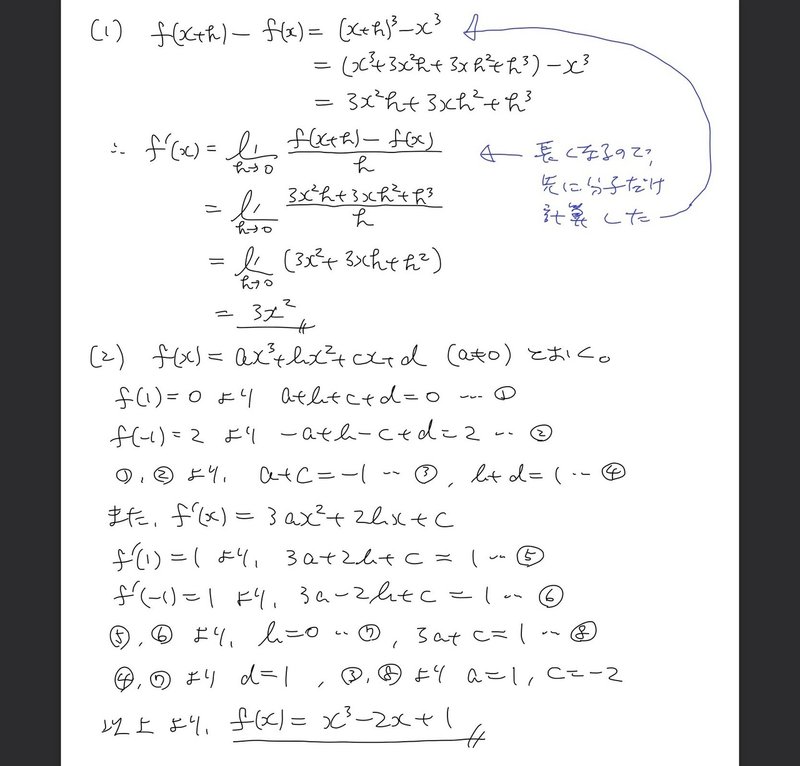 (1) f(x+h) - f(x) = (x+h)³ - x³
= (x³+3x²h+3xh²+h³) - x³
= 3x²h+3xh²+h³
∴ f'(x) = lim_{h→0} (f(x+h) - f(x))/h ← 長くなるので、
先に分子だけ
計算した
= lim_{h→0} (3x²h+3xh²+h³)/h
= lim_{h→0} (3x²+3xh+h²)
= 3x²
(2) f(x) = ax³+bx²+cx+d (a≠0) とおく。
f(1)=0 より a+b+c+d=0 … ①
f(-1)=2 より -a+b-c+d=2 … ②
①, ② より、 a+c=-1 … ③, b+d=1 … ④
また、f'(x) = 3ax²+2bx+c
f'(1)=1 より、 3a+2b+c=1 … ⑤
f'(-1)=1 より、 3a-2b+c=1 … ⑥
⑤, ⑥ より、 b=0 … ⑦, 3a+c=1 … ⑧
④, ⑦ より d=1, ③, ⑧ より a=1, c=-2
以上より、 f(x) = x³-2x+1